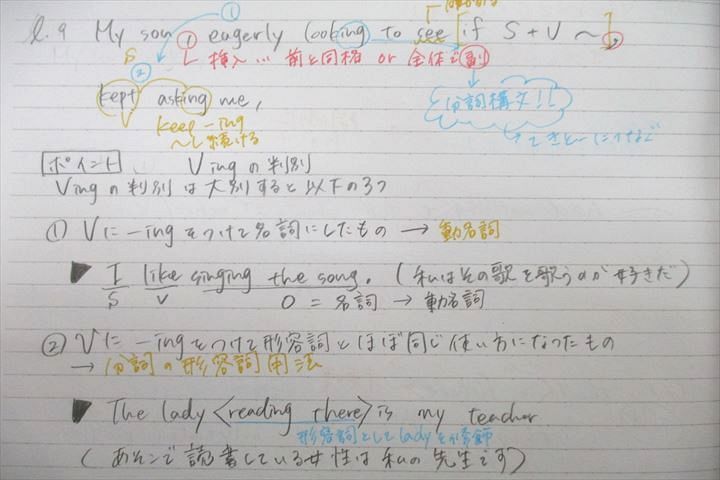 ①
l.9 My son, eagerly looking to see [if S+V ~],
S
挿入… 前と同格 or 全体で副
②
kept asking me,
V
分詞構文!!
keep -ing
~し続ける
てきとーにつなぐ
ポイント Vingの判別
Vingの判別は大別すると以下の3つ
① Vに-ingをつけて名詞にしたもの → 動名詞
▶ I like singing the song. (私はその歌を歌うのが好きだ)
S V O = 名詞 → 動名詞
② Vに-ingをつけて形容詞とほぼ同じ使い方になったもの
→ 分詞の形容詞用法
▶ The lady <reading there> is my teacher.
形容詞としてladyを修飾
(あそこで読書している女性は私の先生です)